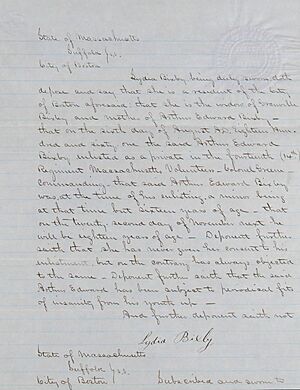 State of Massachusetts
Suffolk ss.
City of Boston
Lydia Bixby, being duly sworn, doth
depose and say that she is a resident of the City
of Boston aforesaid; that she is the widow of Cromwell
Bixby and mother of Arthur Edward Bixby –
that on the sixth day of August AD. Eighteen Hun-
dred and sixty one the said Arthur Edward
Bixby enlisted as a private in the fourteenth (14th)
Regiment Massachusetts Volunteers – Colonel Greene
Commanding: that said Arthur Edward Bixby
was, at the time of his enlisting, a minor, being
at that time but sixteen years of age – that
on the twenty second day of November next he
will be eighteen years of age – Deponent further
saith that she has never given her consent to his
enlistment, but on the contrary has always objected
to the same – Deponent further saith that the said
Arthur Edward has been subject to periodical fits
of insanity from his youth up –
And further deponent saith not
Lydia Bixby
State of Massachusetts
Suffolk ss.
City of Boston Subscribed and sworn to